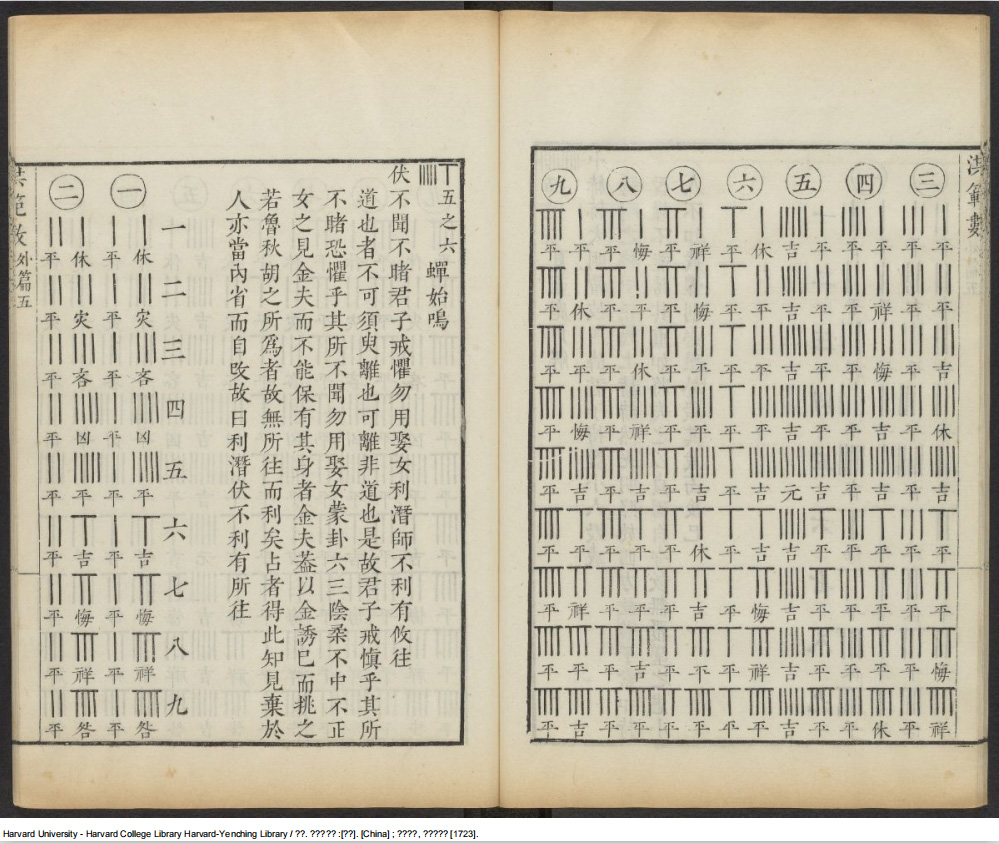 洪範數
三
平平吉休吉平平悔祥
平平平平平平平平平
四
平祥悔吉吉平平平休
平平平平平平平平平
五
平平平平吉平平平平
吉吉吉吉元吉吉吉吉
六
休平平平吉吉悔祥平
平平平平平平平平平
七
祥悔平平吉休吉平平
平平平平平平平平平
八
悔平休祥吉平平吉平
平平平平平平平平平
九
平休平悔吉平祥平吉
平平平平平平平平平
五之六 蟬始鳴
伏不聞不睹君子戒懼勿用娶女利潛師不利有攸往
道也者不可須臾離也可離非道也是故君子戒慎乎其所
不睹恐懼乎其所不聞勿用娶女蒙卦六三陰柔不中不正
女之見金夫而不能保有其身者金夫葢以金誘巳而挑之
若魯秋胡之所爲者故無所往而利矣占者得此知見棄於
人亦當內省而自攺故曰利潛伏不利有所往
一二三四五六七八九
一
休灾吝凶平吉悔祥咎
平平平平平平平平平
二
休灾吝凶平吉悔祥咎
平平平平平平平平平
洪範數外篇五
Harvard University - Harvard College Library Harvard-Yenching Library / ??. ????? :[??]. [China] ; ????, ????? [1723].